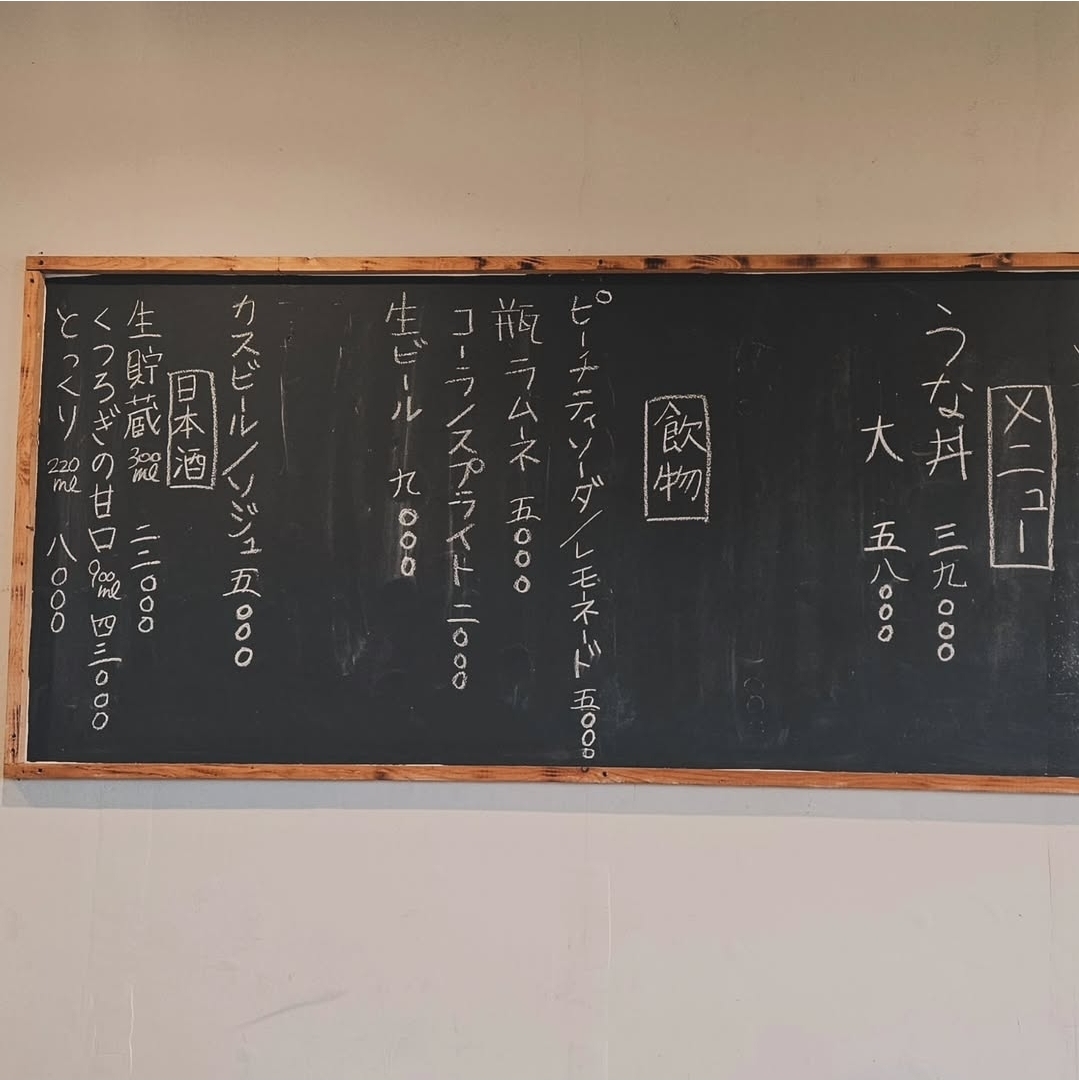 メニュー
うな丼 三九〇〇〇
大 五八〇〇〇
飲物
ピーチティソーダ/レモネード 五〇〇〇
瓶ラムーネ 五〇〇〇
コーラ/スプライト 二〇〇〇
生ビール 九〇〇〇
カスビール/ソジュ 五〇〇〇
日本酒
生貯蔵 300ml 二二〇〇〇
くつろぎの甘口 900ml 四三〇〇〇
とっくり 220ml 八〇〇〇